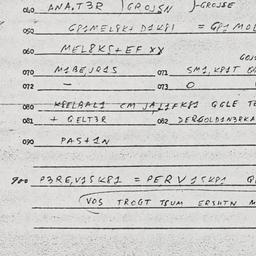 040 ANA,T3R )GROJSN )-GROJSE
050 GP1MEL8K+ D1KP1 = GP1 MOL
060 MEL8KS+EF XX
070 M1BEJR1S 071 SM1,KP1T
072 - 073 0
080 CM JA11FKP1 GGLE TE
081 + GELT3R 082 DERGOLD1N3RKA
090 PAS+1N
900 P3RE,V1SKP1 = PERV1SKP1
VOS TROGT TSUM ERSHTN M